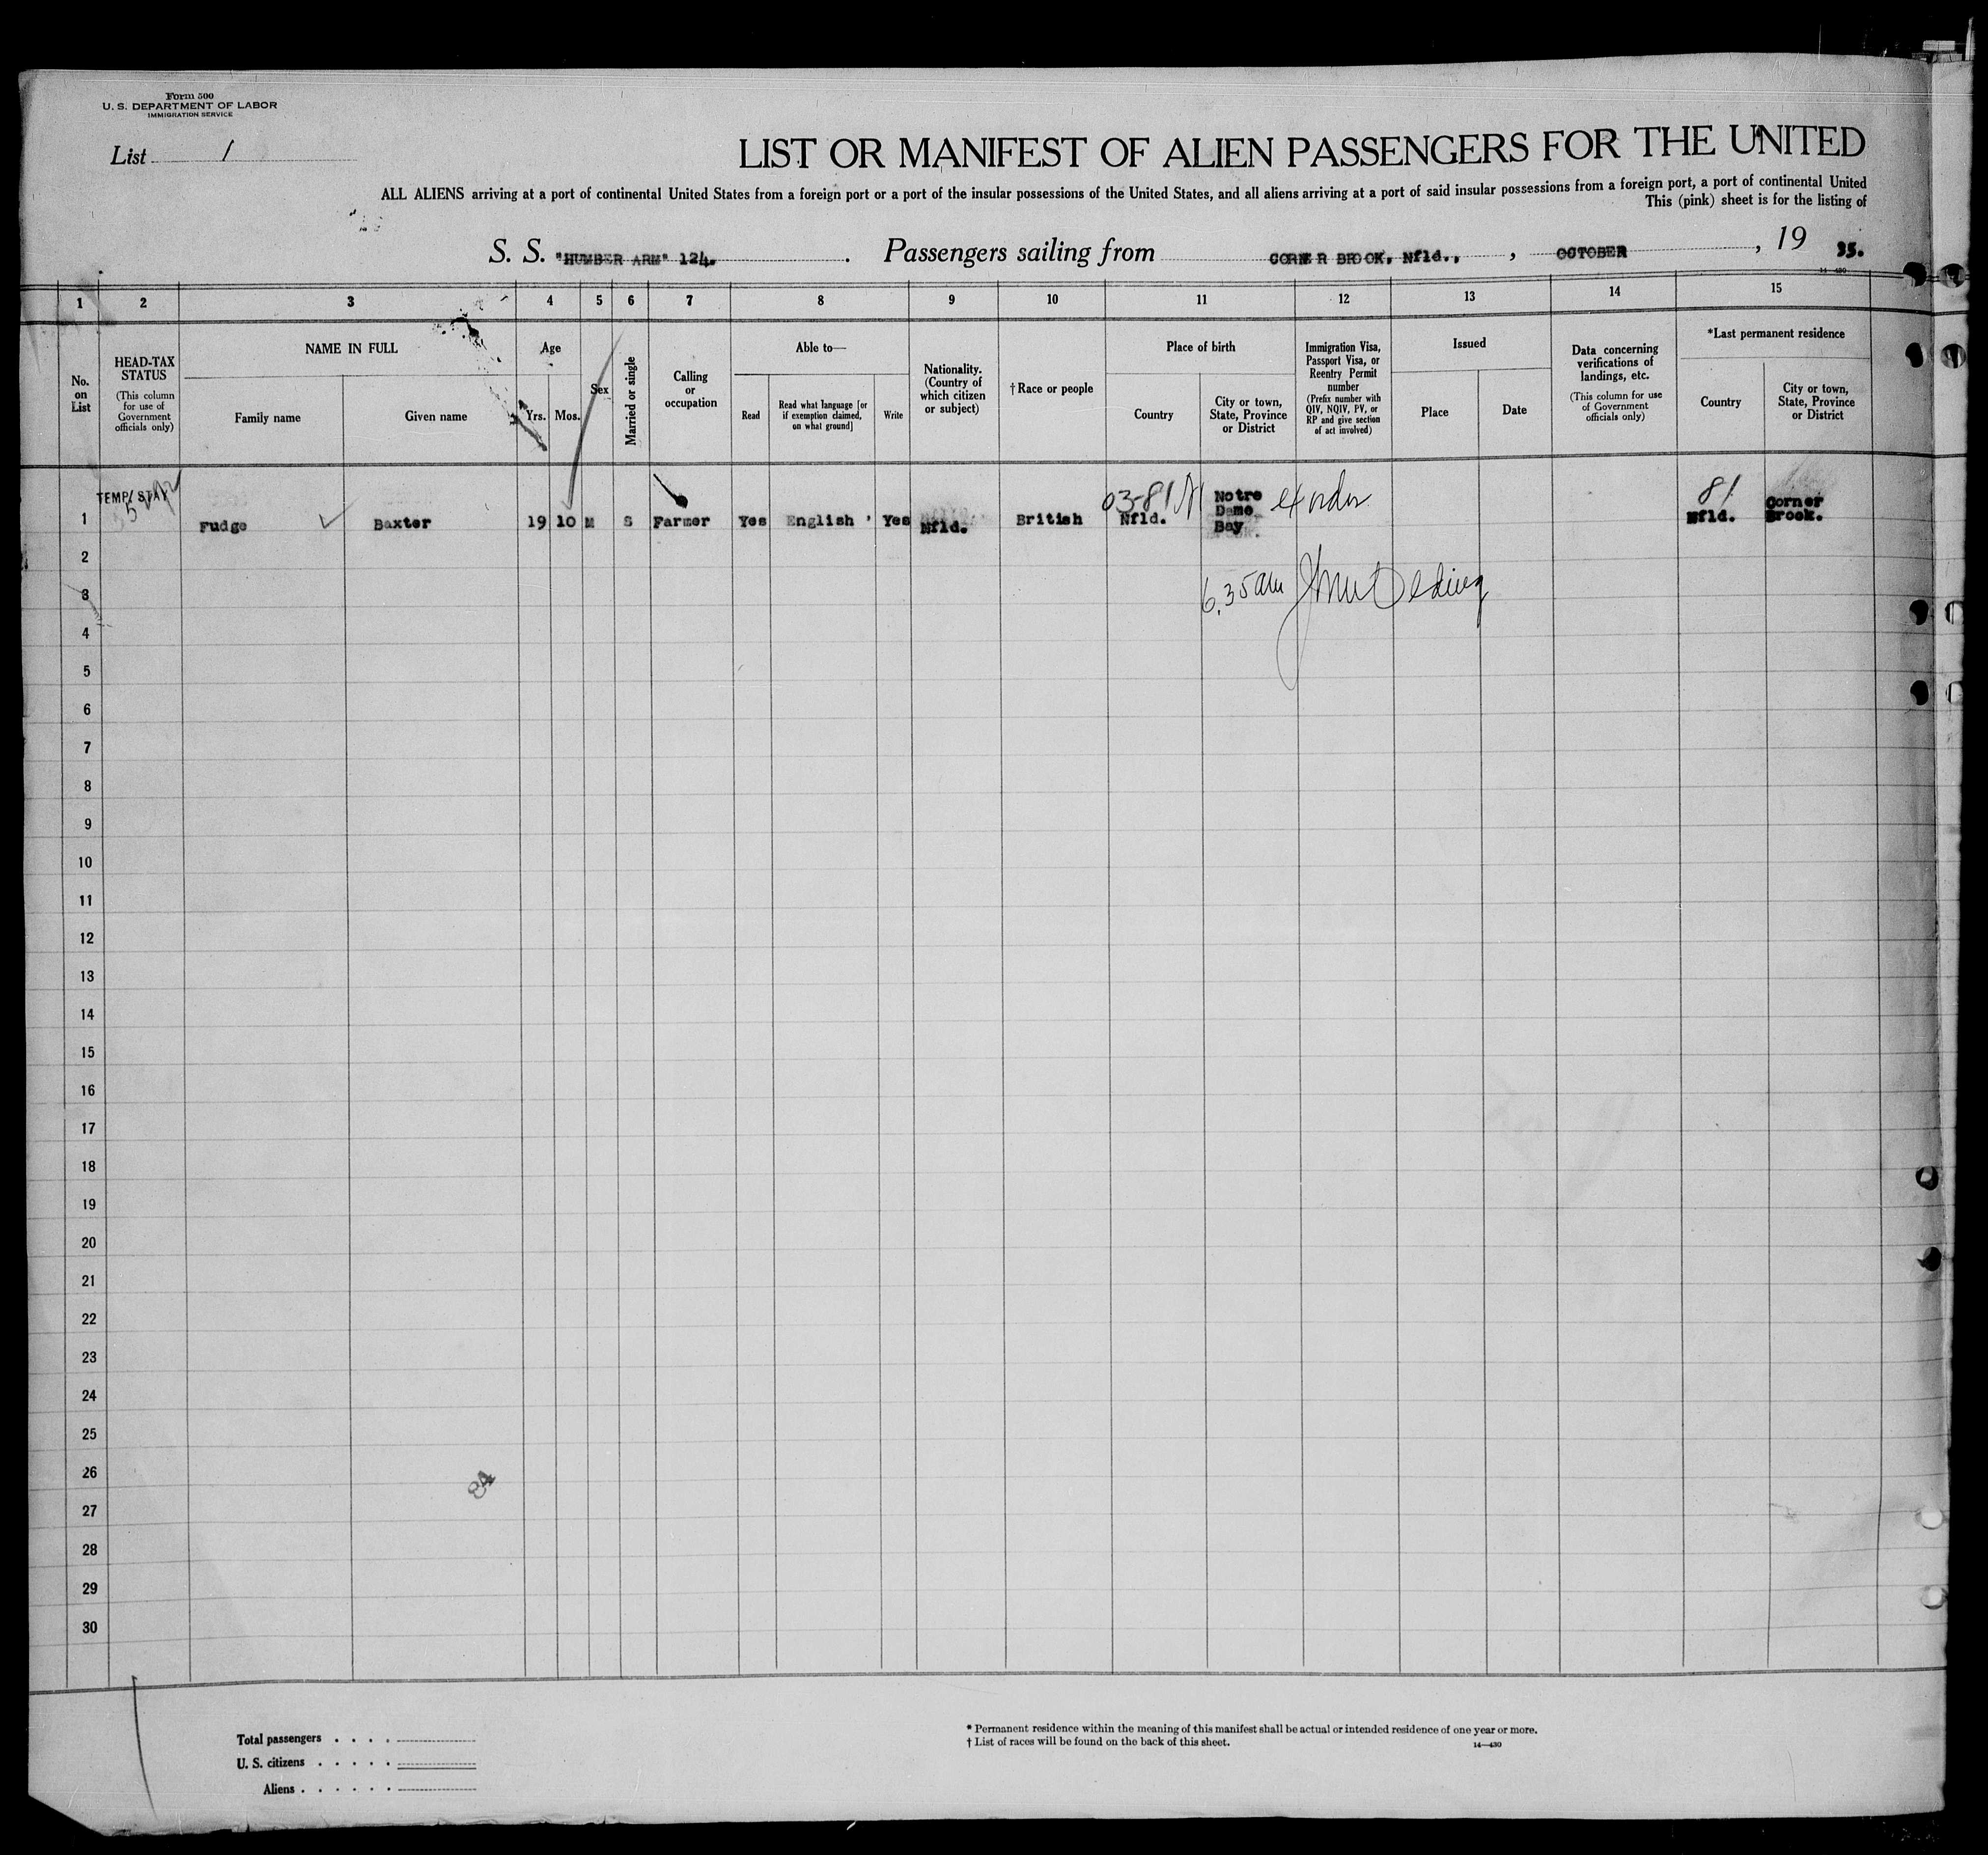 Form 500
U. S. DEPARTMENT OF LABOR
IMMIGRATION SERVICE
List 1
LIST OR MANIFEST OF ALIEN PASSENGERS FOR THE UNITED
ALL ALIENS arriving at a port of continental United States from a foreign port or a port of the insular possessions of the United States, and all aliens arriving at a port of said insular possessions from a foreign port, a port of continental United
This (pink) sheet is for the listing of
S. S. "HUMBER ARM" 124. . Passengers sailing from CORNER BROOK, Nfld., , OCTOBER , 19 35.
14—430
1 2 3 4 5 6 7 8 9 10 11 12 13 14 15
No. on List
HEAD-TAX STATUS
(This column for use of Government officials only)
NAME IN FULL
Family name
Given name
Age
Yrs.
Mos.
Sex
Married or single
Calling or occupation
Able to—
Read
Read what language [or if exemption claimed, on what ground]
Write
Nationality. (Country of which citizen or subject)
†Race or people
Place of birth
Country
City or town, State, Province or District
Immigration Visa, Passport Visa, or Reentry Permit number
(Prefix number with QIV, NQIV, PV, or RP and give section of act involved)
Issued
Place
Date
Data concerning verifications of landings, etc.
(This column for use of Government officials only)
*Last permanent residence
Country
City or town, State, Province or District
TEMP/ STAY
03-81
81
1 Fudge Baxter 19 10 M S Farmer Yes English Yes Nfld. British Nfld. Notre Dame Bay Nfld. Corner Brook.
6.35 am
2
3
4
5
6
7
8
9
10
11
12
13
14
15
16
17
18
19
20
21
22
23
24
25
26
27
28
29
30
Total passengers . . . .
U. S. citizens . . . . .
Aliens . . . . . .
* Permanent residence within the meaning of this manifest shall be actual or intended residence of one year or more.
† List of races will be found on the back of this sheet.
14—430